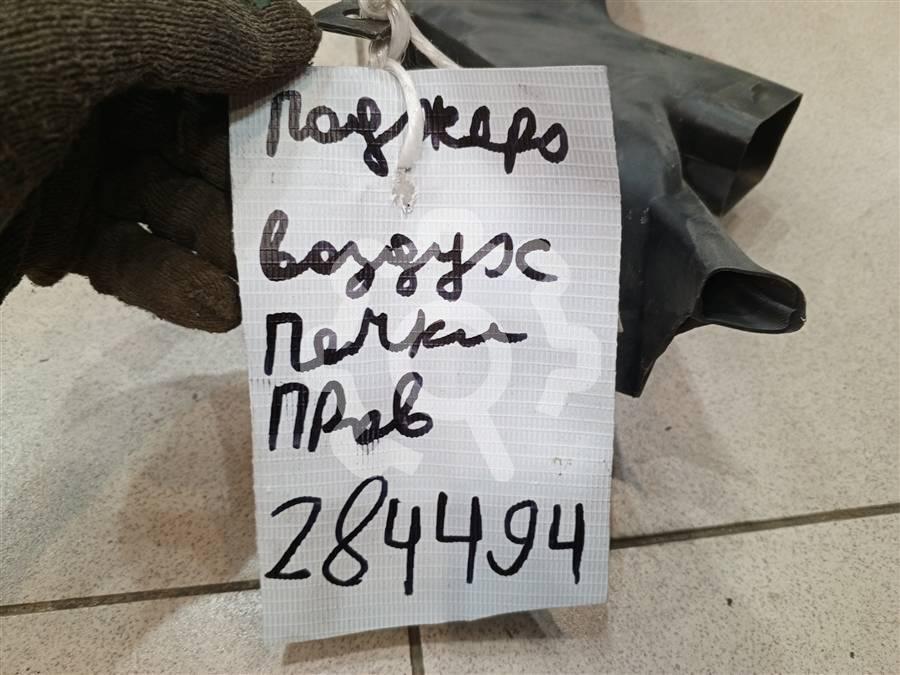 Паджеро
воздух
Печки
Прав
284494